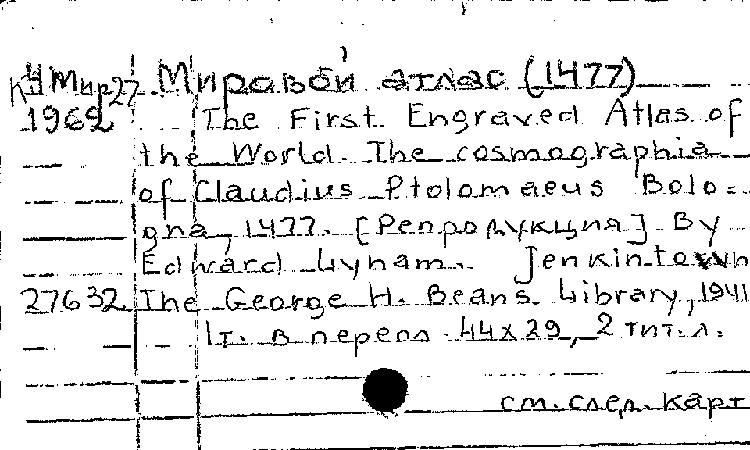 К4 Мир27 Мировой атлас (1477)
1962 The First Engraved Atlas of
the World. The cosmographia
of Claudius Ptolomaeus Bolo-
gna, 1477. [Репродукция] By
Edward Lynam. Jenkintown
27632 The George H. Beans Library, 1941
1т. в перепл. 44x29, 2 тит.л.
см. след. карт